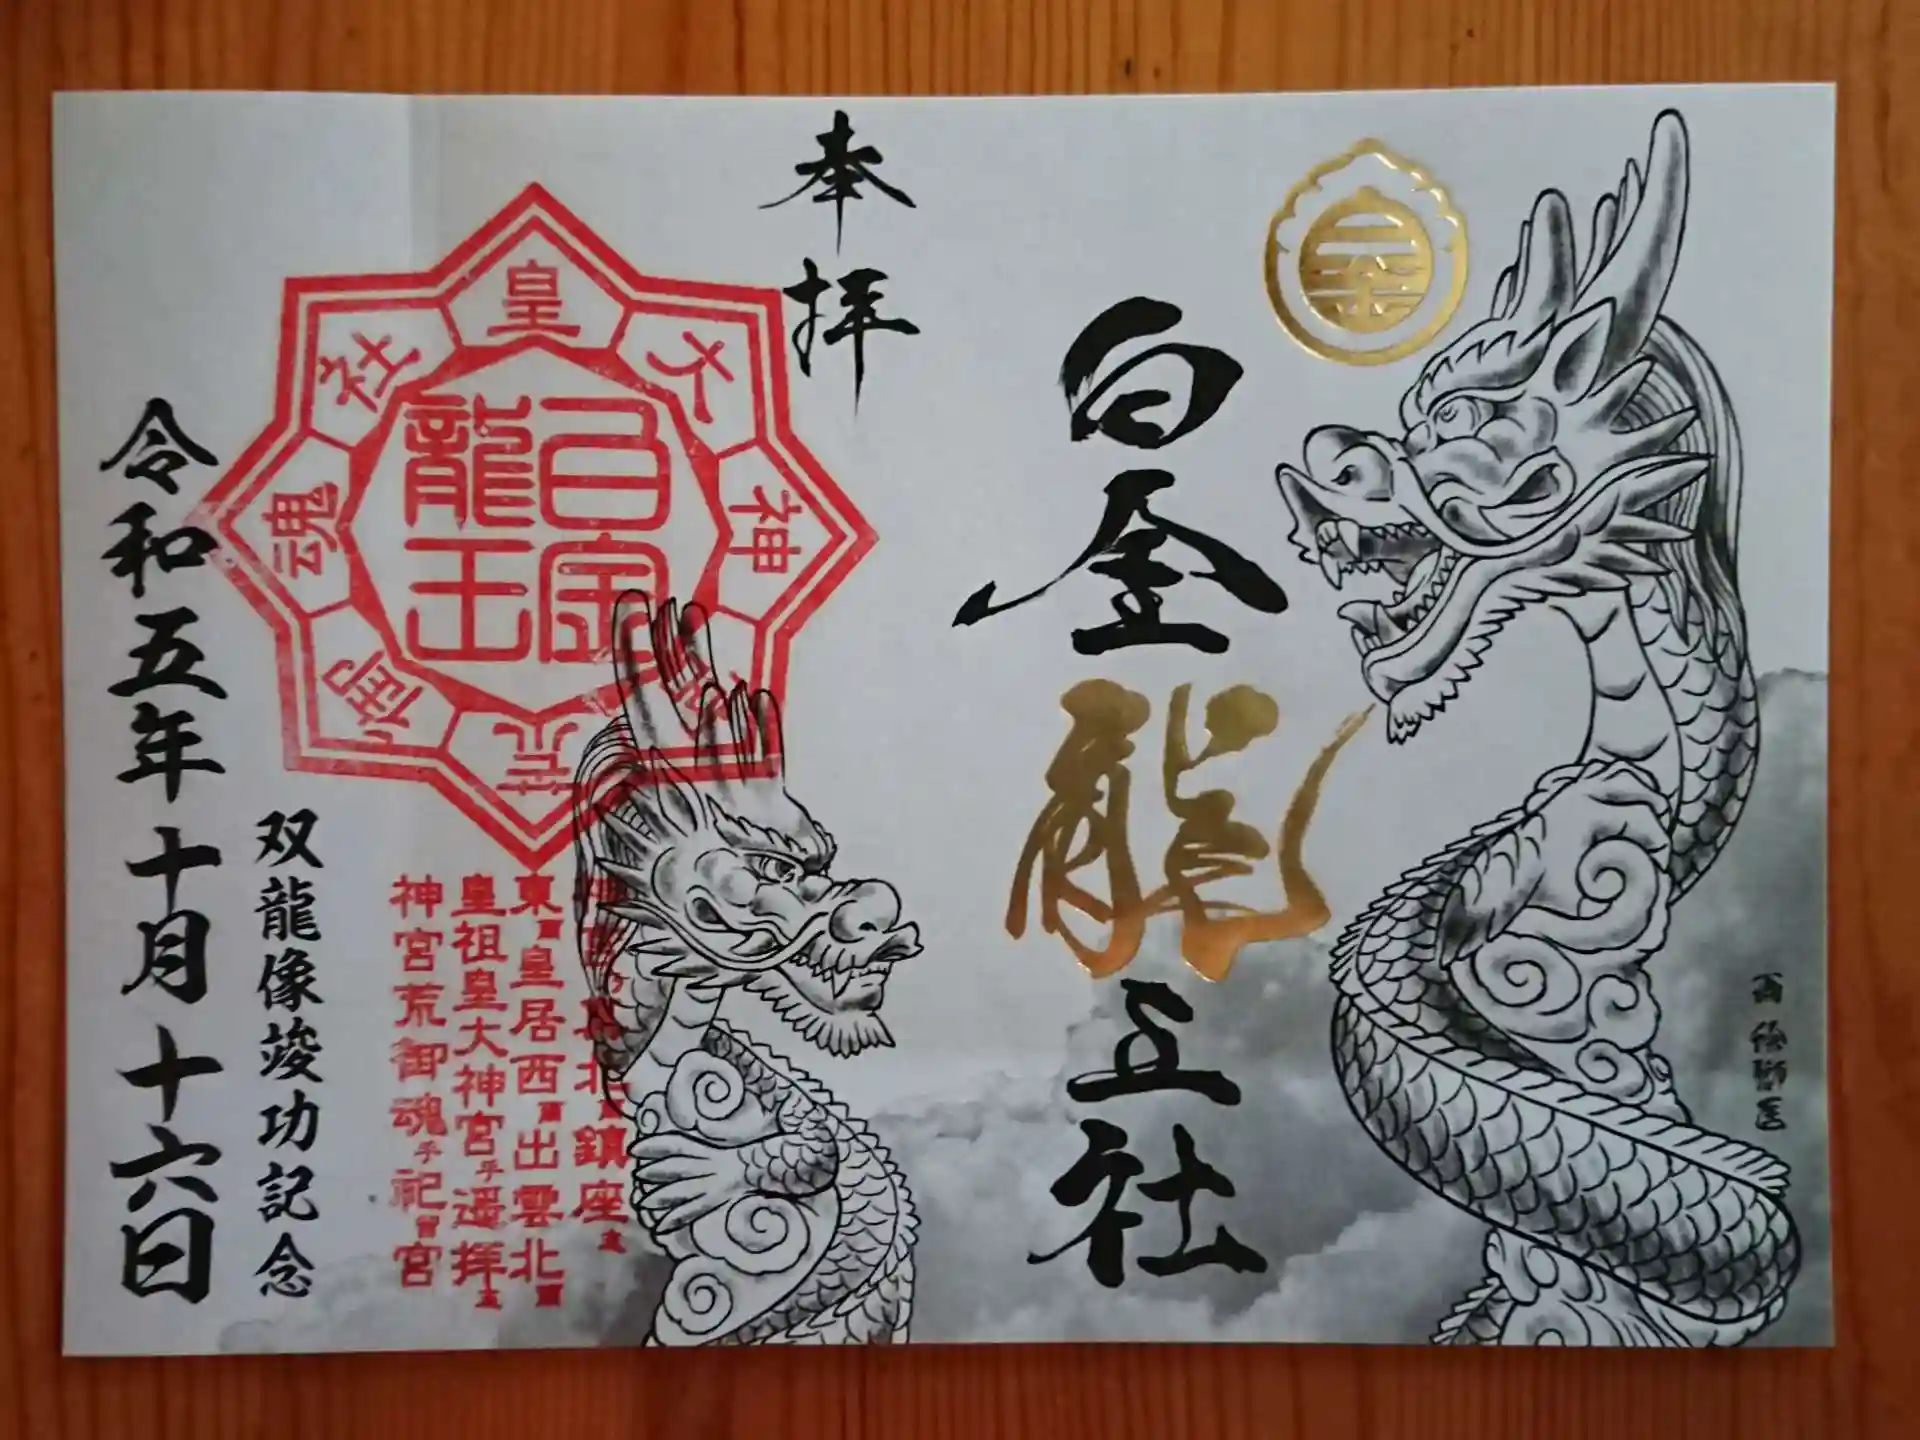 白金龍王社
奉拝
皇大神
荒御魂社
白金
龍王
東皇居西出雲北
皇祖皇大神宮乎遥拝
神宮荒御魂乎祀宮
双龍像竣功記念
令和五年十月十六日